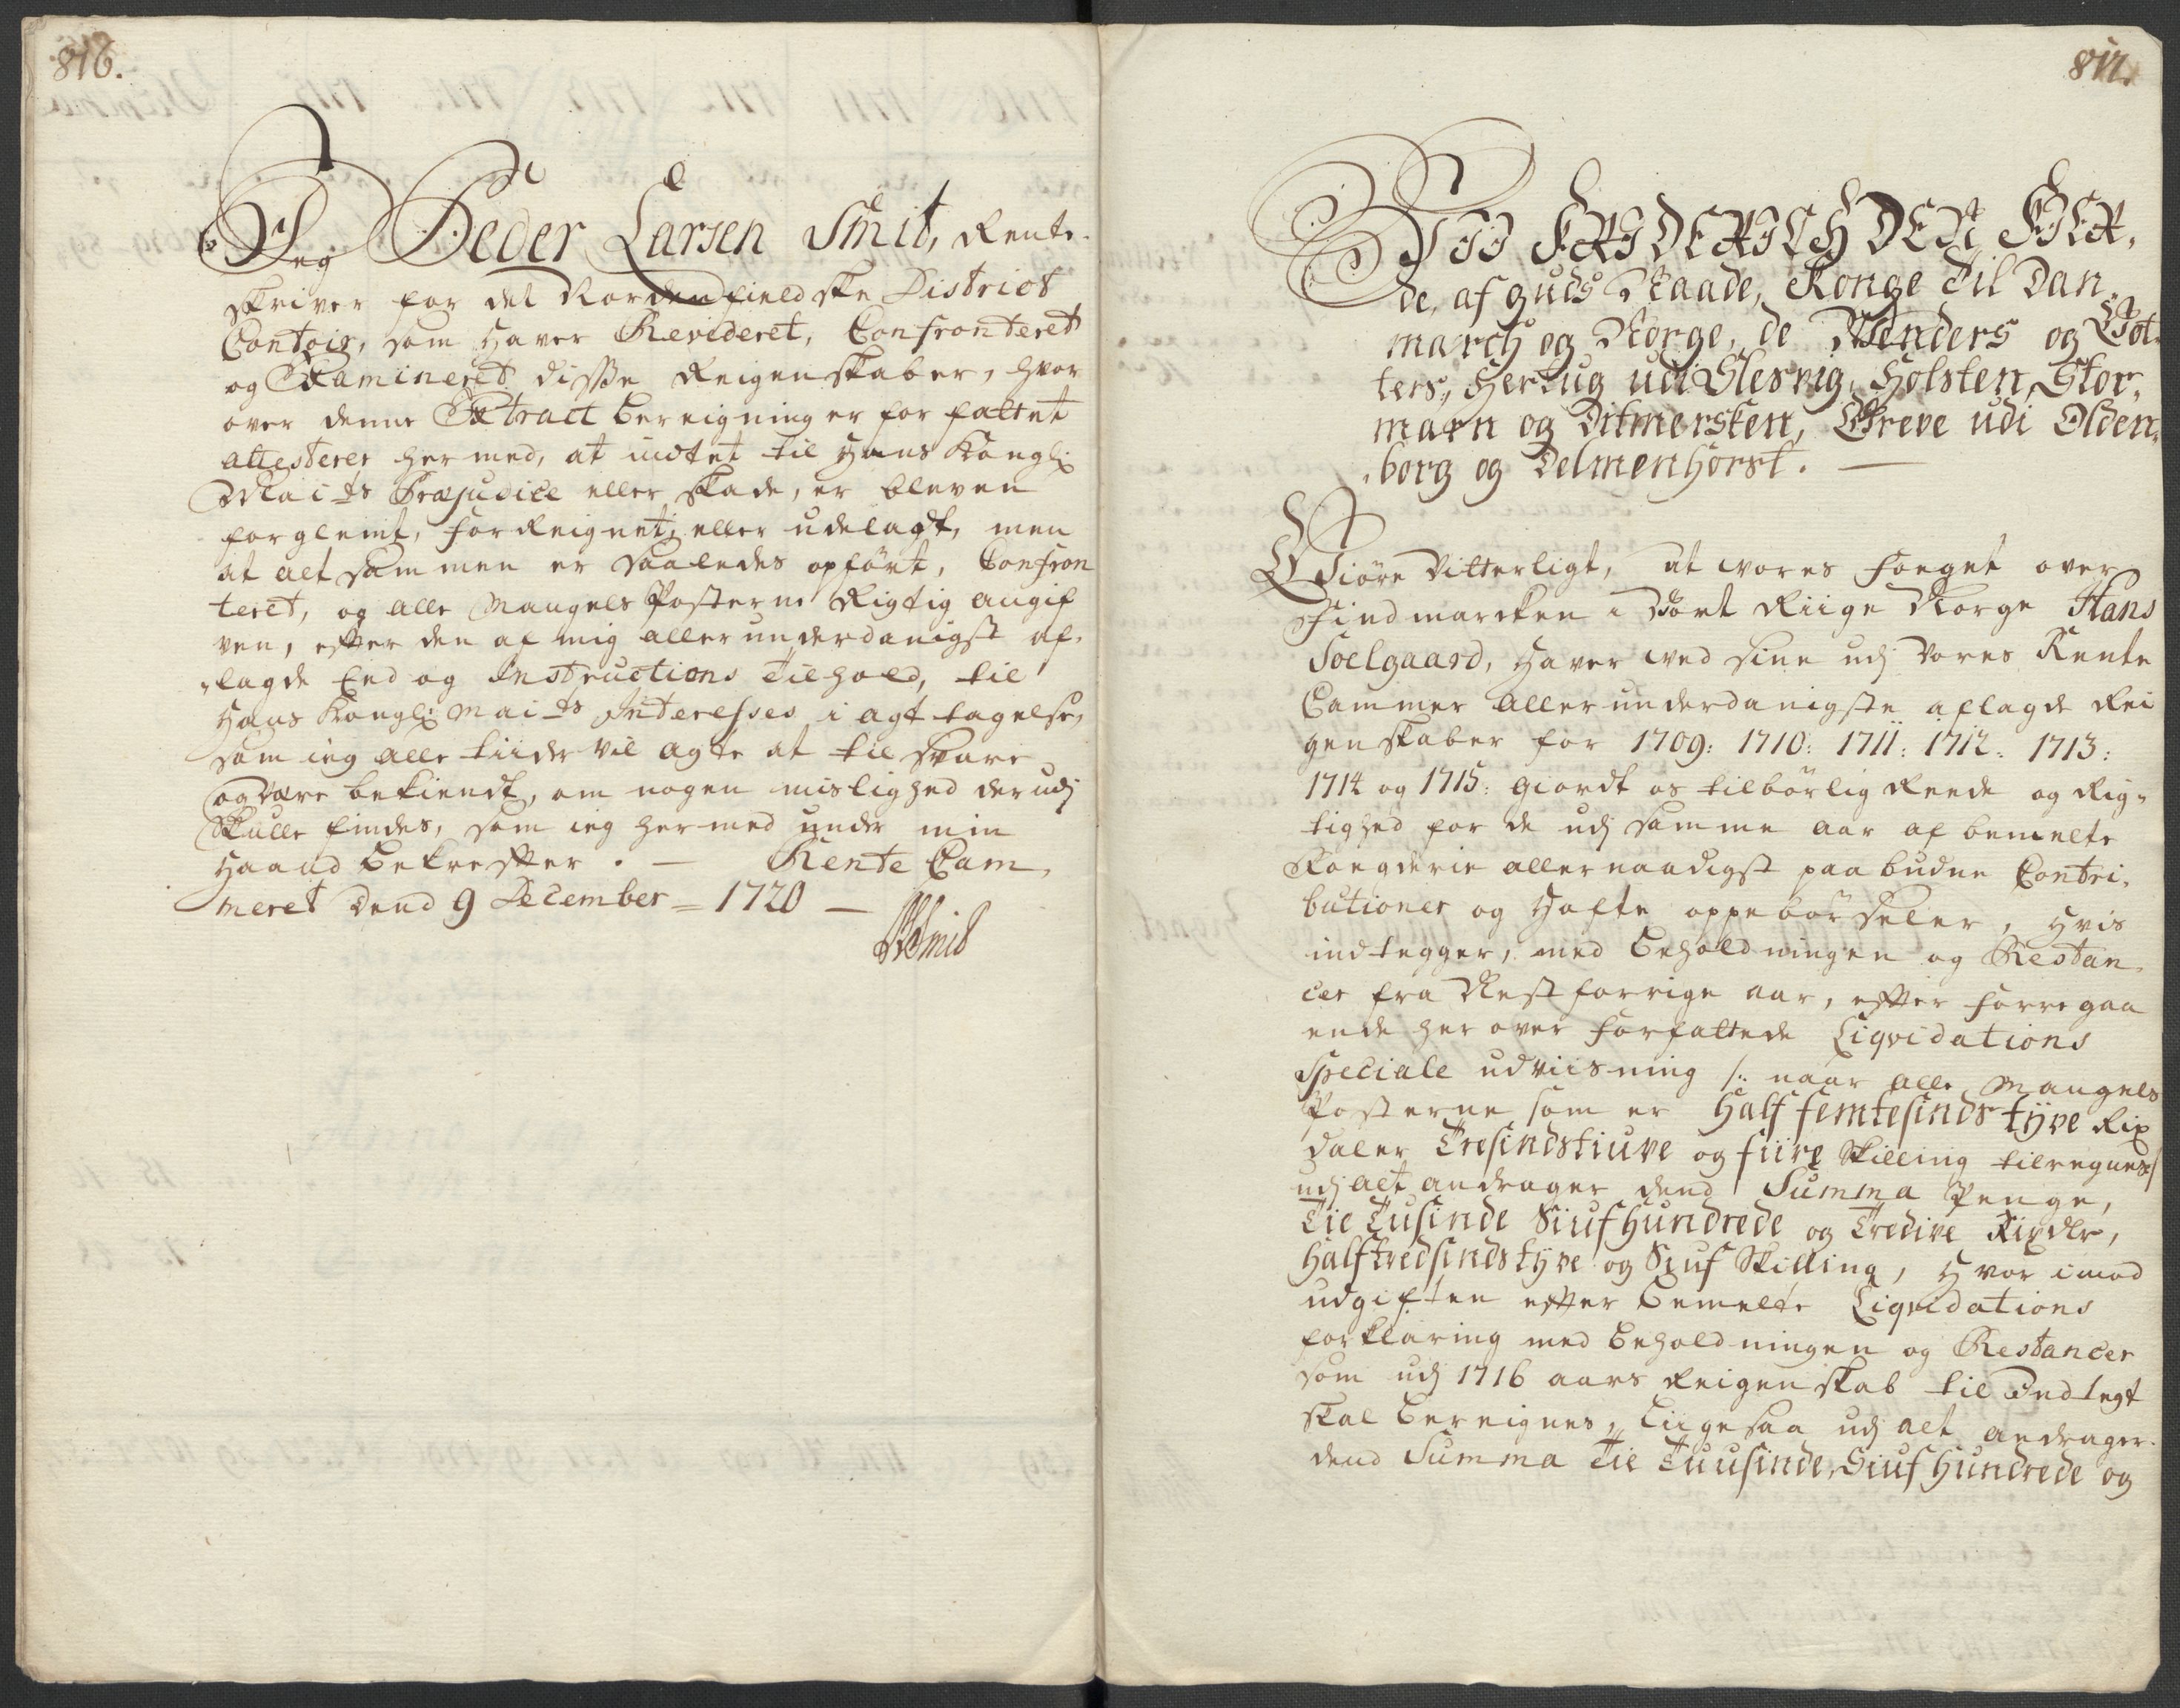 816.
Jeg Peder Larsen Smit, Rente-
skriver for det Nordenfieldske District
Contoir, som haver Revideret, Confronteret
og Examineret disse Reigenskaber, hvor
over denne Extract bereigning er forfattet
attesterer hermed, at intet til Hans Kongl:
Mai-ts Præjudice eller skade, er bleven
forglemt, forreignet, eller udelagt, men
at alt sammen er saaledes opført, Confron
teret, og alle Mangels Posterne Rigtig angif
ven, effter den af mig allerunderdanigst af-
lagde Eed og Instructions Tilhold, til
Hans Kongl: Mai-ts Interesses i agt tagelse,
som ieg alle tiider vil agte at til svare
og være bekiendt, om nogen mislighed der udj
skulle findes, som ieg hermed under min
Haand bekreffter. — Rente Cam-
meret Dend 9 December = 1720 —
PLSmit
817.
VII FRIDERICH DEN FIER-
de, af Guds Naade, Konge til Dan-
march og Norge, de Wenders og Got-
ters, Hertug udi Slesvig, Holsten, Stor-
marn og Ditmersken, Greve udi Olden-
borg og Delmenhorst. —
Giøre Vitterligt, at vores Foeget over
Findmarcken i Vort Riige Norge Hans
Soelgaard, haver ved sine udj Vores Rente
Cammer allerunderdanigste aflagde Rei
genskaber for 1709: 1710: 1711: 1712: 1713:
1714 og 1715: giordt os tilbørlig Reede og Rig-
tighed for de udj samme aar af bemelte
Foegderie allernaadigst paabudne Contri-
butioner og Hafte oppebørseler, Hvis
indtegger, med beholdningen og Restan-
cer fra Nestforrige aar, effter forregaa
ende her over forfattede Liqvidations
Speciale udviisning /: naar alle Mangels
Posterne som er Half femtesinds tyve Rix
daler Tresindstiuve og fiire Skilling tilregnes :/
udj alt andrager dend Summa Penge,
Tie Tusinde Siufhundrede og Tredive Rixdlr,
Halftredsindstyve og Siuf Skilling, Hvor imod
udgiften effter bemelte Liqvidations
forklaring med beholdningen og Restancer
som udj 1716 aars Reigenskab til Indtegt
skal bereignes, liigesaa udj alt andrager
dend Summa Tie Tuusinde, Siuf Hundrede og